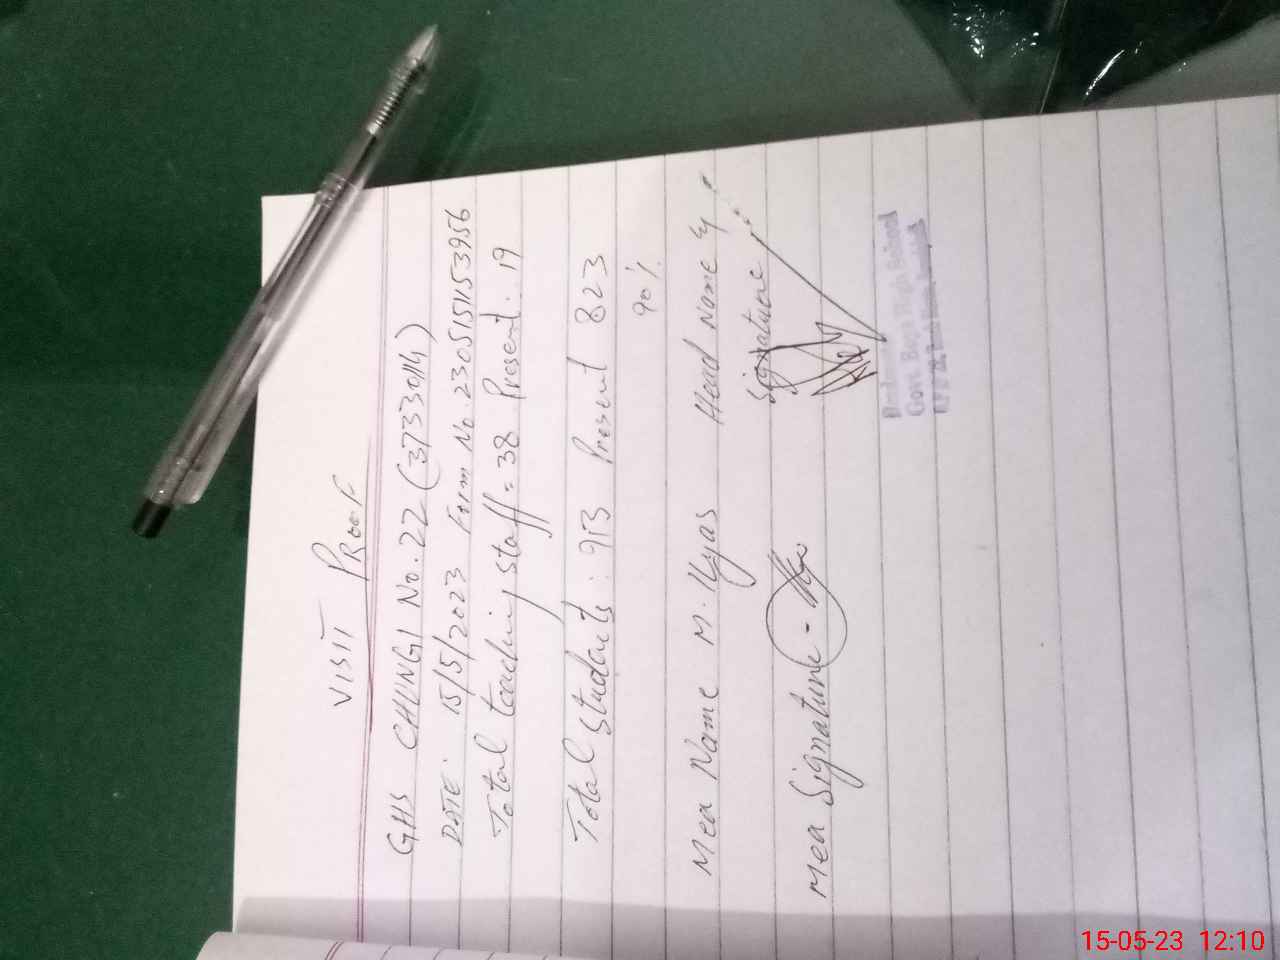 VISIT PROOF
GHS CHUNGI No. 22 (37330114)
DATE: 15/5/2023 Form No. 230515115153956
Total teaching staff = 38 Present: 19
Total Students: 913 Present 823
90%
Mea Name M. Ilyas Head Name &
Signature
Mea Signature -
Govt. Boys High School
15-05-23 12:10